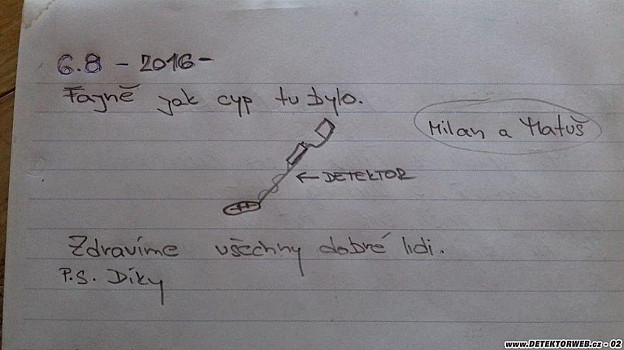 6.8 - 2016-
Fajně jak cyp tu bylo.
Milan a Matuš
← DETEKTOR
Zdravíme všechny dobré lidi.
P.S. Díky
www.DETEKTORWEB.cz - 02